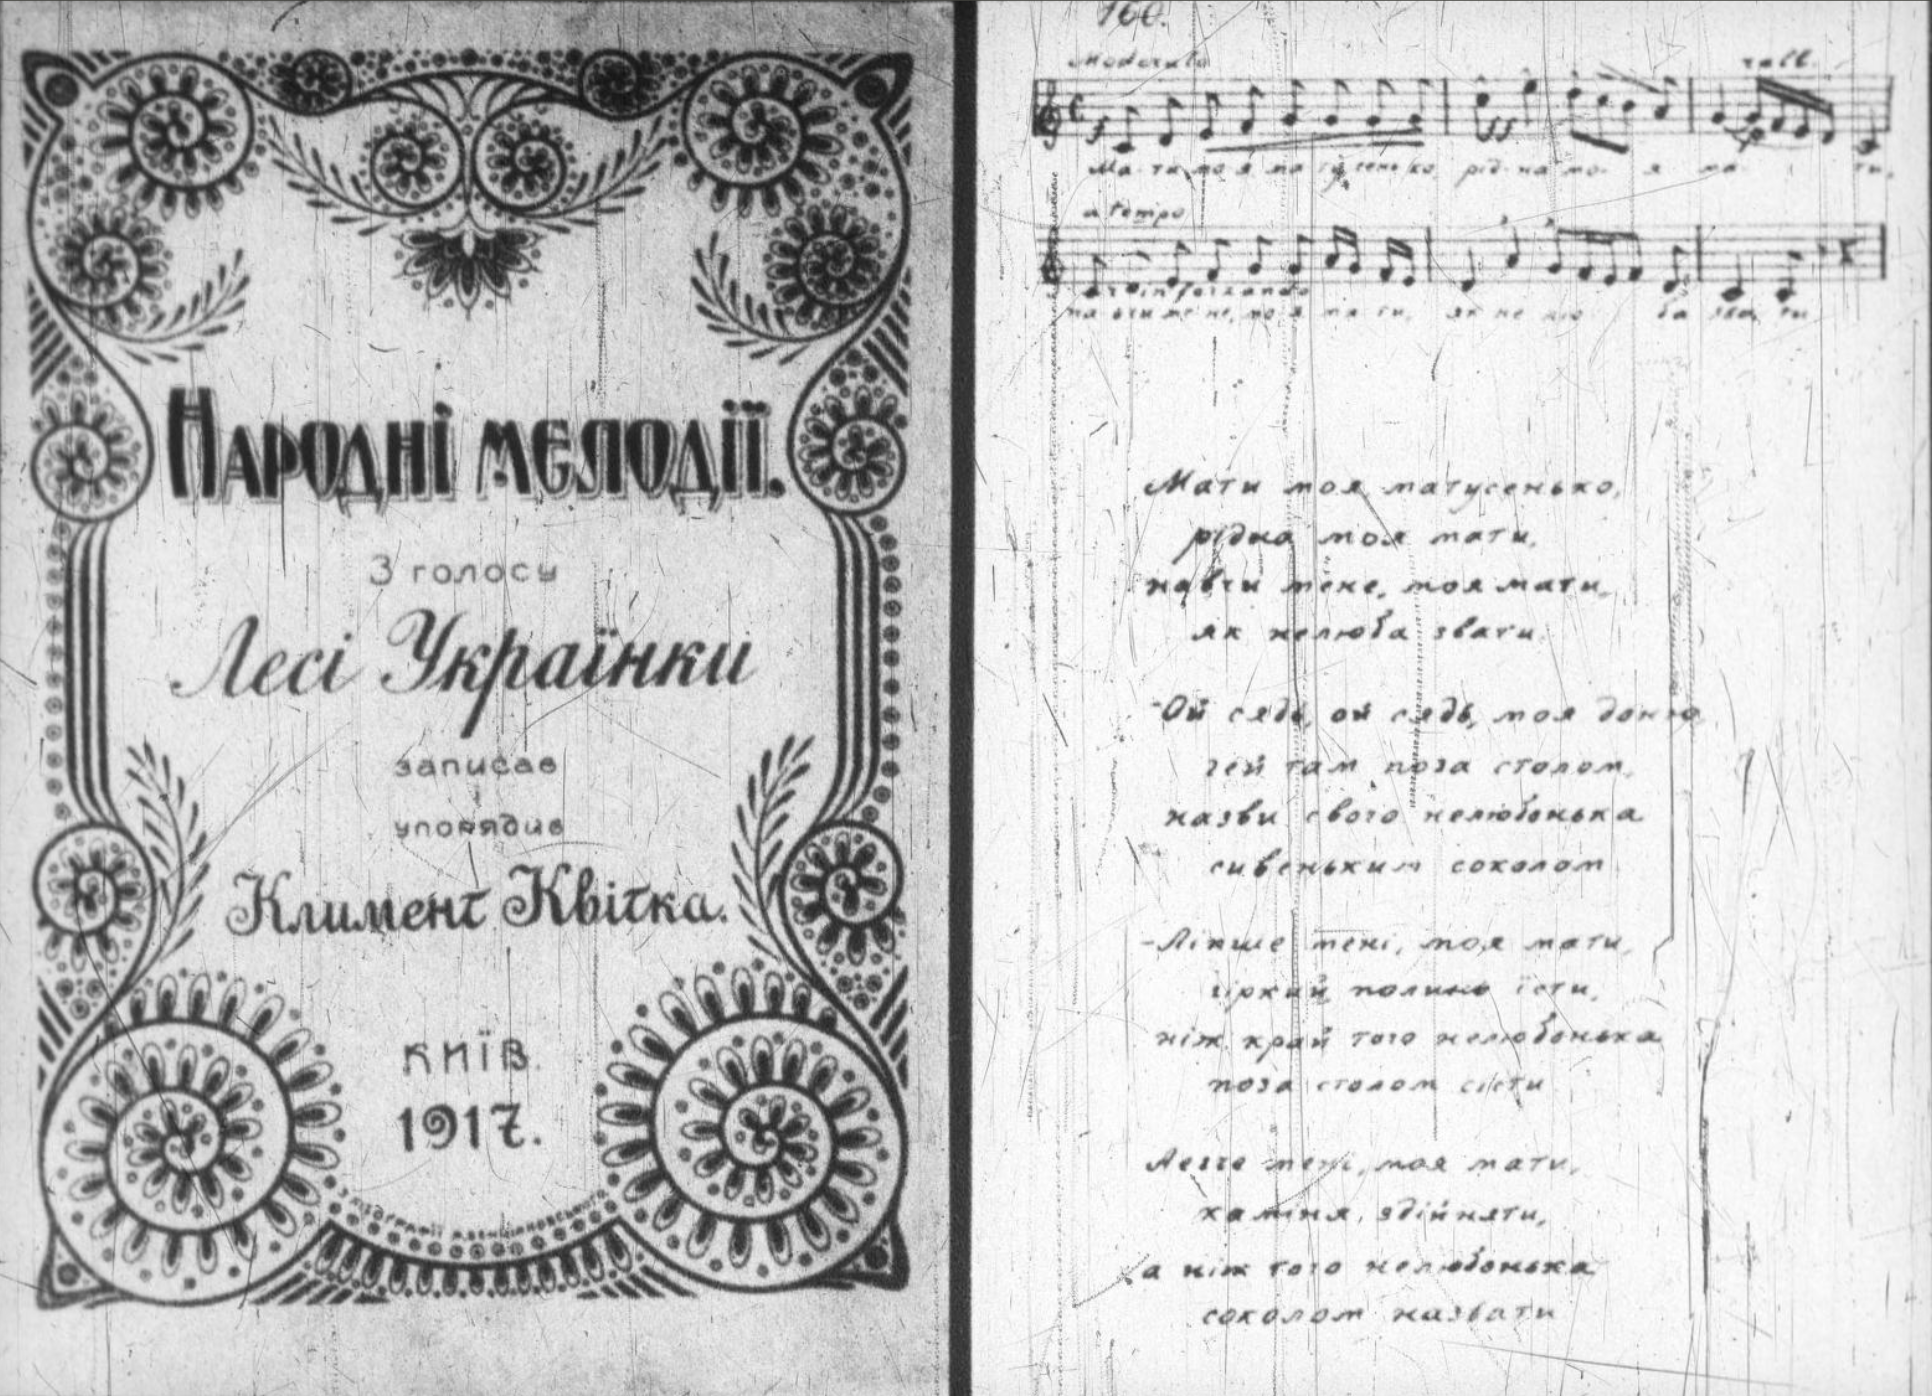 Народні мелодії.
З голосу
Лесі Українки
записав
упорядив
Климент Квітка.
КИЇВ.
1917.
160.
Moderato
rall.
Ма-ти мо я ма ту сень ко, рід-на мо- я ма- ти,
a tempo
rinforzando
на вчи ме не, мо я ма ти, як не лю ба зва ти
Мати моя матусенько,
рідна моя мати,
навчи мене, моя мати,
як нелюба звати.
-Ой сядь, ой сядь, моя доню,
гей там поза столом,
назви свого нелюбонька
сивеньким соколом.
-Ліпше мені, моя мати,
гіркий полинь їсти,
ніж край того нелюбонька
поза столом сісти
Легче мені, моя мати,
каміня здійняти,
а ніж того нелюбонька
соколом назвати